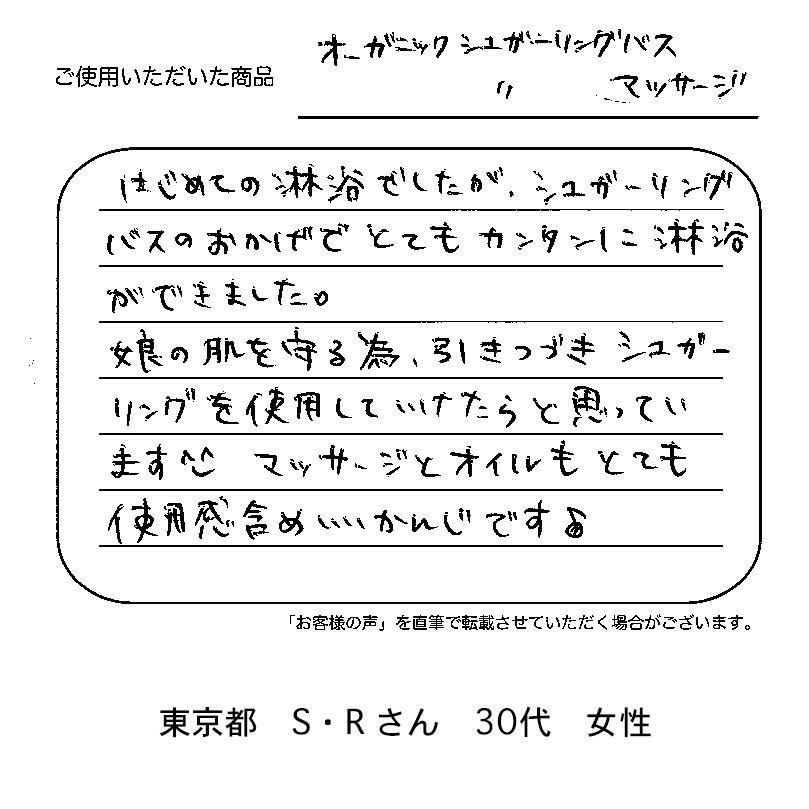 オーガニック シュガーリングバス
ご使用いただいた商品
〃 マッサージ
はじめての淋浴でしたが、シュガーリング
バスのおかげで とても カンタンに 淋浴
ができました。
娘の肌を守る為、引きつづき シュガー
リングを使用していけたらと思ってい
ます^^ マッサージとオイルも とても
使用感含め いいかんじです♪
「お客様の声」を直筆で転載させていただく場合がございます。
東京都 S・Rさん 30代 女性